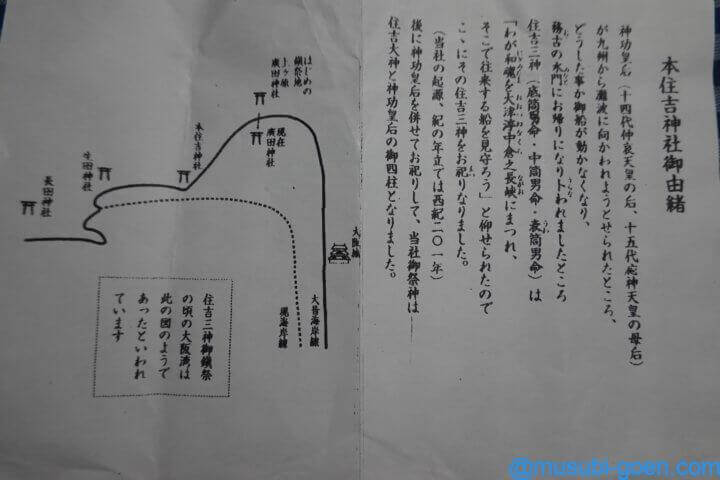 本住吉神社御由緒
神功皇后(十四代仲哀天皇の后、十五代応神天皇の母后)
が九州から灘波に向かわれようとせられたところ、
どうした事か御船が動かなくなり、
務古の水門にお帰りになり卜われましたところ
住吉三神(底筒男命・中筒男命・表筒男命)は
「わが和魂を大津渟中倉之長峡にまつれ、
そこで往来する船を見守ろう」と仰せられたので
こゝにその住吉三神をお祀りなりました。
(当社の起源、紀の年立ては西紀二〇一年)
後に神功皇后を併せてお祀りして、当社御祭神は
住吉大神と神功皇后の御四柱となりました。
大阪城
大昔海岸線
現海岸線
はじめの
鎮祭地
上ヶ原
廣田神社
現在
廣田神社
本住吉神社
生田神社
長田神社
住吉三神御鎮祭
の頃の大阪湾は
此の図のようで
あったといわれ
ています
@musubi-goen.com